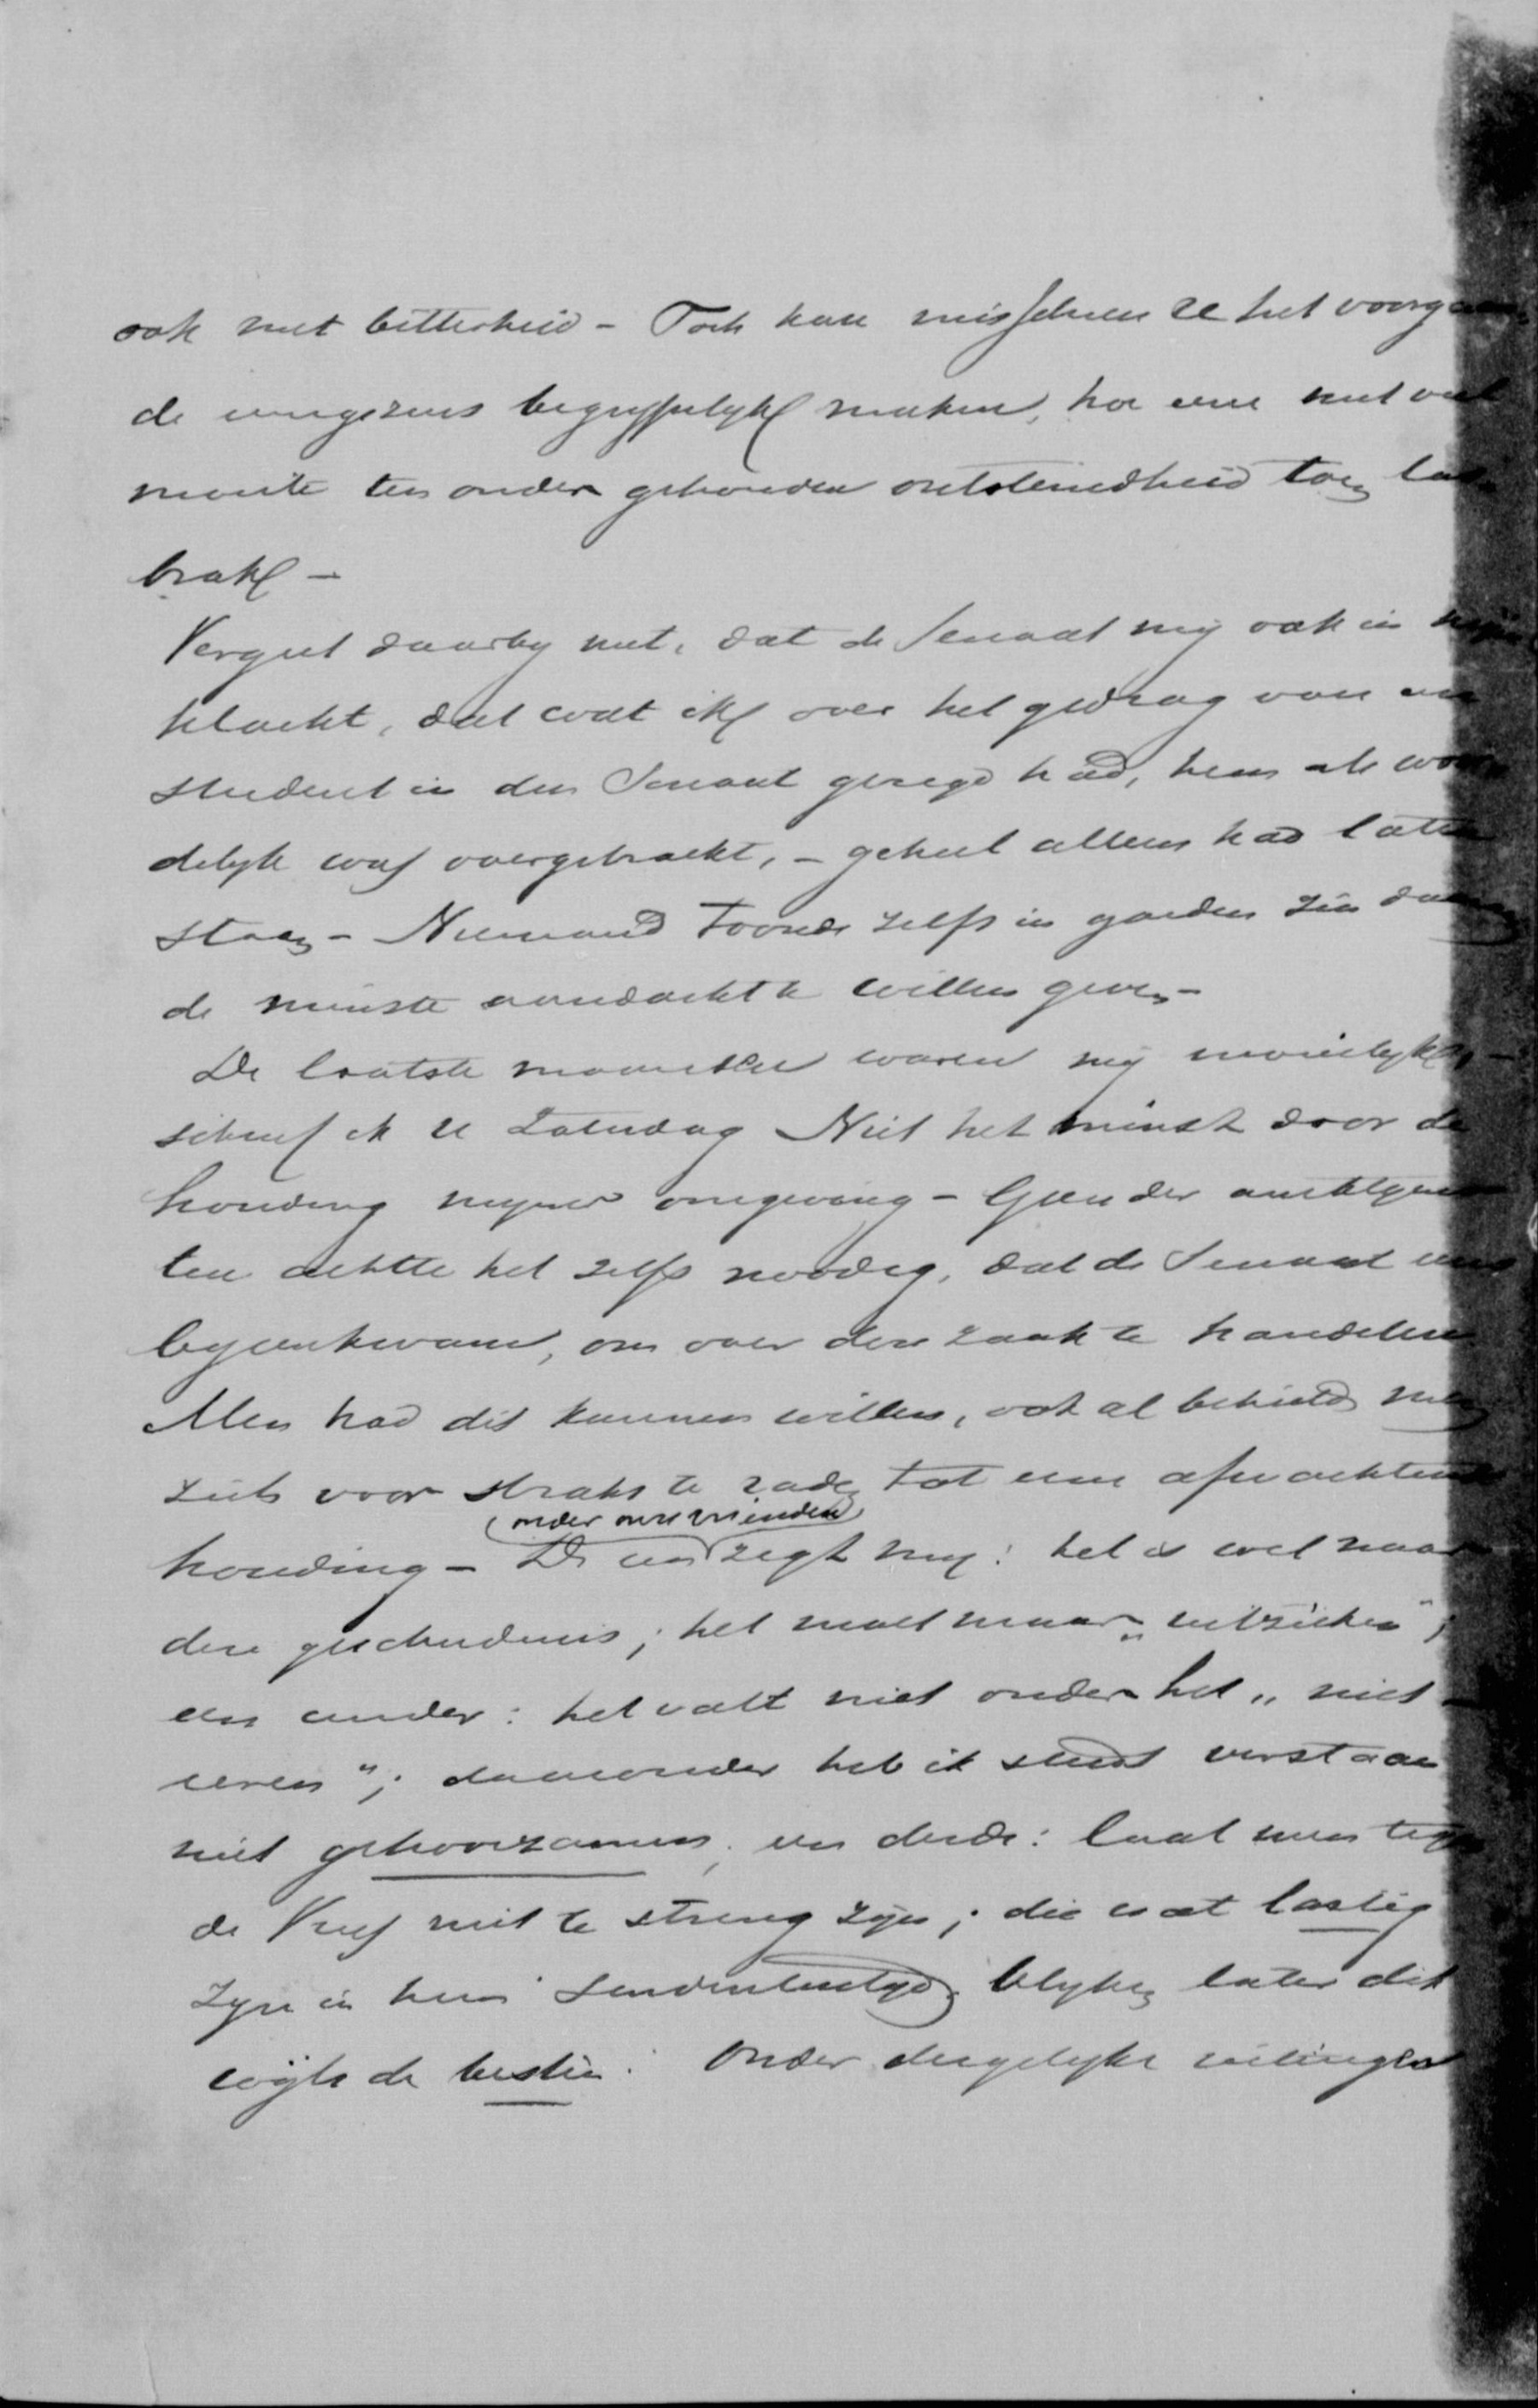 ook met bitterheid - Toch kan misschien U het voorgaan-
de eenigszins begrijpelijk maken, hoe eene met veel
moeite ten onder gehouden ontstemdheid toen los-
brak -
Vergeet daarby niet, dat de Senaat my ook in
klacht, dat wat ik over het gedrag van een
student in den Senaat gezegd had, hem als woor-
delyk was overgebracht, - geheel alleen had laten
staan - Niemand toonde zelfs in goeden zin daar
de minste aandacht te willen geven -
De laatste maanden waren my moeielyk -
schreef ik U Zaterdag Niet het minst door de
houding myner omgeving - Geen der ambtgenoo-
ten achtte het zelfs noodig, dat de Senaat eens
byeenkwam, om over deze zaak te handelen
Men had dit kunnen willen, ook al behield men
zich voor straks te raden tot eene afwachtende
(onder onze vrienden)
houding - De een zegt my: het is wel naar
deze geschiedenis; het moet maar „uitzieken";
een ander: het valt niet onder het „niet
eeren"; daaronder heb ik steeds verstaan
niet gehoorzamen; een derde: laat men tegen
de Vries niet te streng zyn; die wat lastig
zyn in hun studententyd, blyken later dik
wyls de besten. Onder dergelyke uitingen